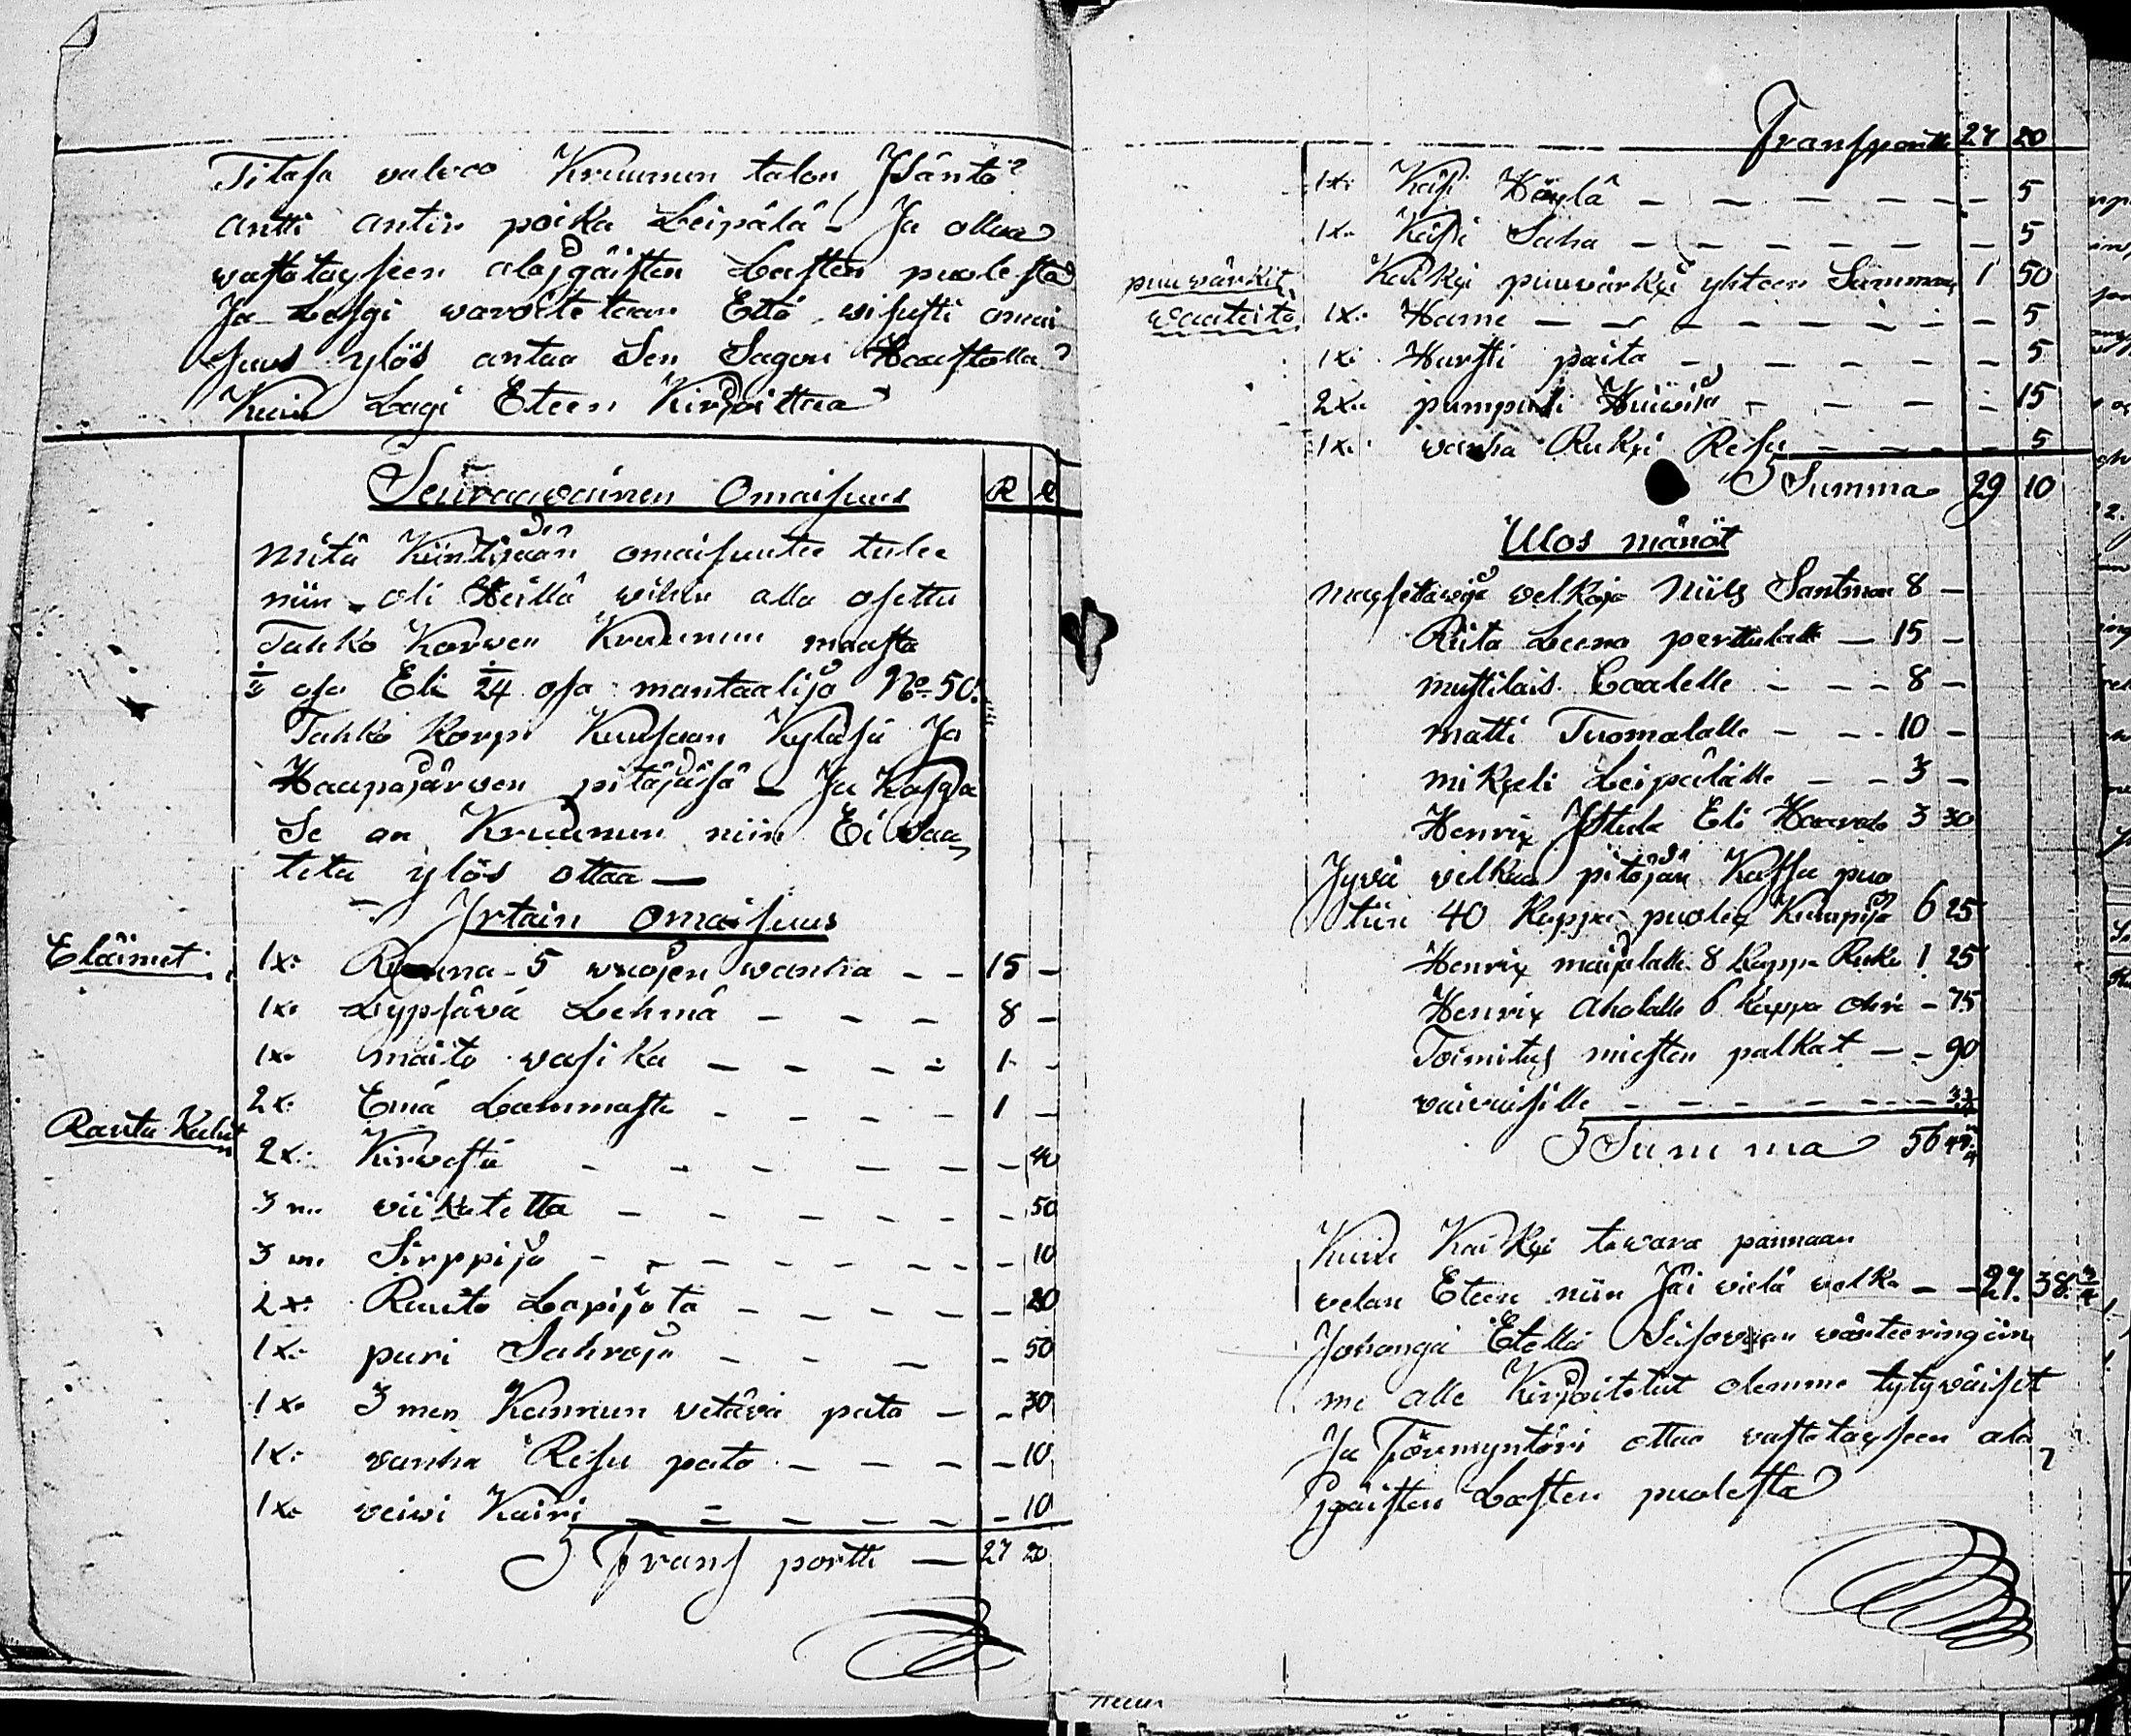 Tilasa valvoo Kruunun talon Isäntä
antti antin poika Leipälä - Ja ottaa
wastatayseen alajgäisten Lasten puolesta
Ja Lesgi waroitetaan Että wisusti omai
suus ylös antaa Sen Sagon Haastolla
Kuin Lagi Eteen Kirjoittaa
Seuraawainen Omaisuus R K
mitä Kiintijään omaisuutee tulee
niin oli Heillä wiliin alla osettu
Tahko Korwen Kruunun maasta
osa Eli 1/24 osa mantaalija No 50.
Tahko Korpi Kuusaan Kyläsä Ja
Haapajärwen pitäjäsä - Ja Koska
Se on Kruunun niin Ei Saa
teta ylös ottaa —
Irtain omaisuus
Eläimet 1x: Ruuna - 5 wuojen wanha - - 15 -
1x: Lypsävä Lehmä - - - 8 -
1x: maito wasika - - - - 1 -
2x: Emä Lammasta - - - - 1 -
Rauta Kalut 2x: Kirvestä - - - - - - 40
3 m. viikatetta - - - - - - 50
3 m. Sirppijä - - - - - - 10
2x: Rauta Lapijota - - - - - 20
1x: puri Sahroja - - - - 50
1x: 3 men Kannun vetävä pata - - 30
1x: vanha Resu pata - - - - 10
1x: veiwi Kairi - - - - - - 10
Trans portti — 27 20
Transportti 27 20
1x: Käsi Höylä - - - - - - 5
1x: Käsi Saha - - - - - - 5
puuwärkit Kaikki puuwärkxi yhteen Summaan 1 50
waateita 1x: Hame - - - - - - - 5
1x: Hursti paita - - - - - 5
2x: pumpuli Huiwia - - - - 15
1x: wanha Rukxi Resu - - - 5
Summa 29 10
Ulos mänöt
maxettawija velkoja Niils Santman 8 -
Riita Leena perttulalle - 15 -
mustilais Caalelle - - - 8 -
matti Tuomalalle - - - 10 -
mikxeli Leipälälle - - 3 -
Henrix Eli 3 30
Jyvä velkaa pitäjän Kassa puo
tiin 40 Kappa puolex Kumpija 6 25
Henrix maijalalle 8 Kappa Ruki 1 25
Henrix Aholalle 6 Kappa ohria - 75
Toimitus miesten palkat - - 90
vaivaisille - - - - - - -
Summa 56
Kuin Kaikki tavara pannaan
velan Eteen niin Jäi vielä velka - - 27. 38. 3/4
Johonga Etellä Seisovaan wärteeringiin
me alle Kirjoitetut olemme tytywäiset
Ja Förmyntäri ottaa vastatayseen ala
jgäisten Lasten puolesta